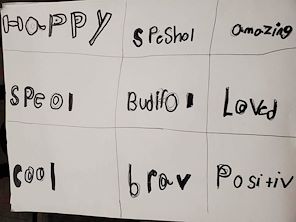 HaPPY
SPeShol
amazing
SPeol
Budifol
Loved
cool
brav
Positiv